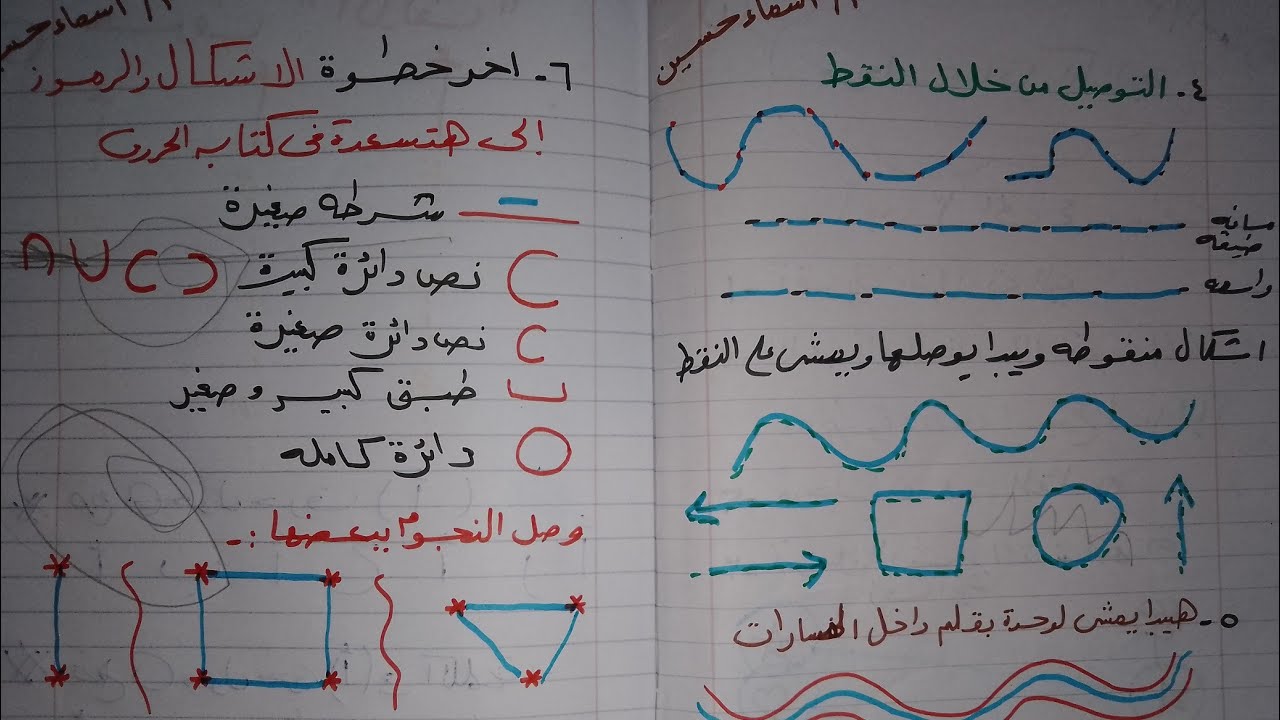 أ/ أسماء حسين
٤- التوصيل من خلال النقط
مسافه
ضيقه
واسعه
اشكال منقوطه ويبدا يوصلها ويمشى على النقط
٥- هيبدا يمشى لوحدة بقلم داخل المسارات
أ/ أسماء حسين
٦- اخر خطوة الاشكال والرموز
إلى هتسعدة فى كتابه الحروف
شرطه صغيرة
نص دائرة كبيرة
نص دائرة صغيرة
طبق كبير و صغير
دائرة كامله
وصل النجوم ببعضها :-